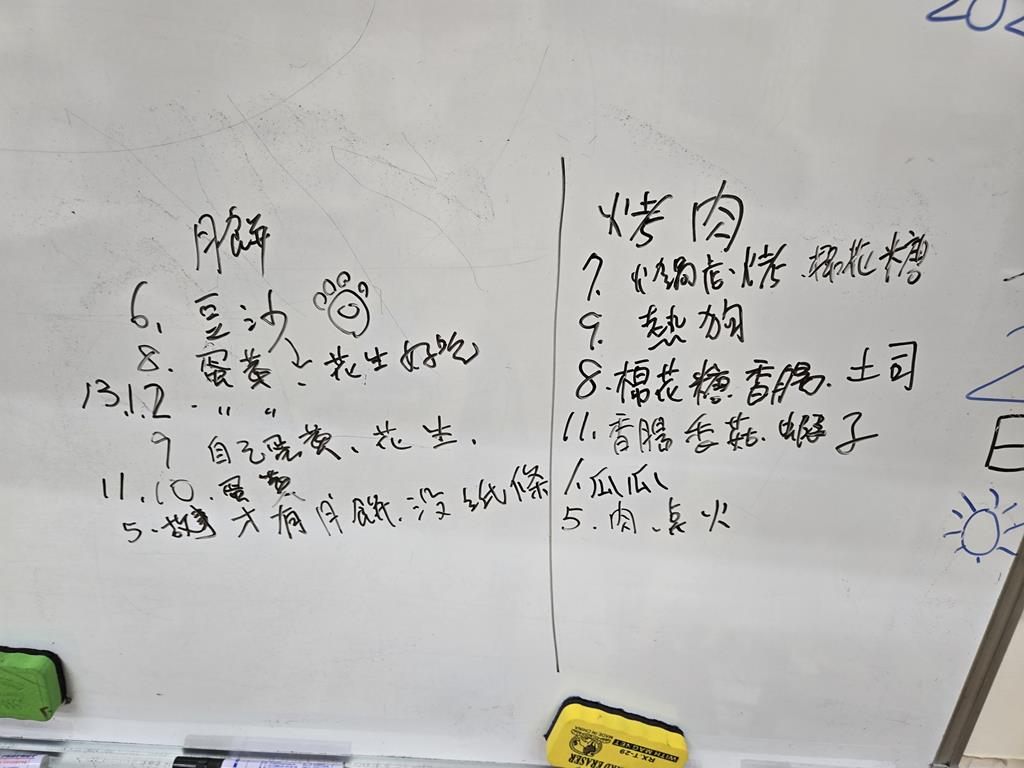 月餅
6. 豆沙
8. 蛋黃、花生好吃
13.1.2. 〃 〃
9 自己蛋黃、花生.
11.10. 蛋黃
5. 故事 才有月餅. 沒紙條
烤肉
7. 火鍋店.烤.棉花糖
9. 熱狗
8. 棉花糖.香腸.土司
11. 香腸 香菇.蝦子
1. 瓜瓜
5. 肉、點火
202
日
RX.T-29
WITH MAGNET
MADE IN CHINA
ERASER